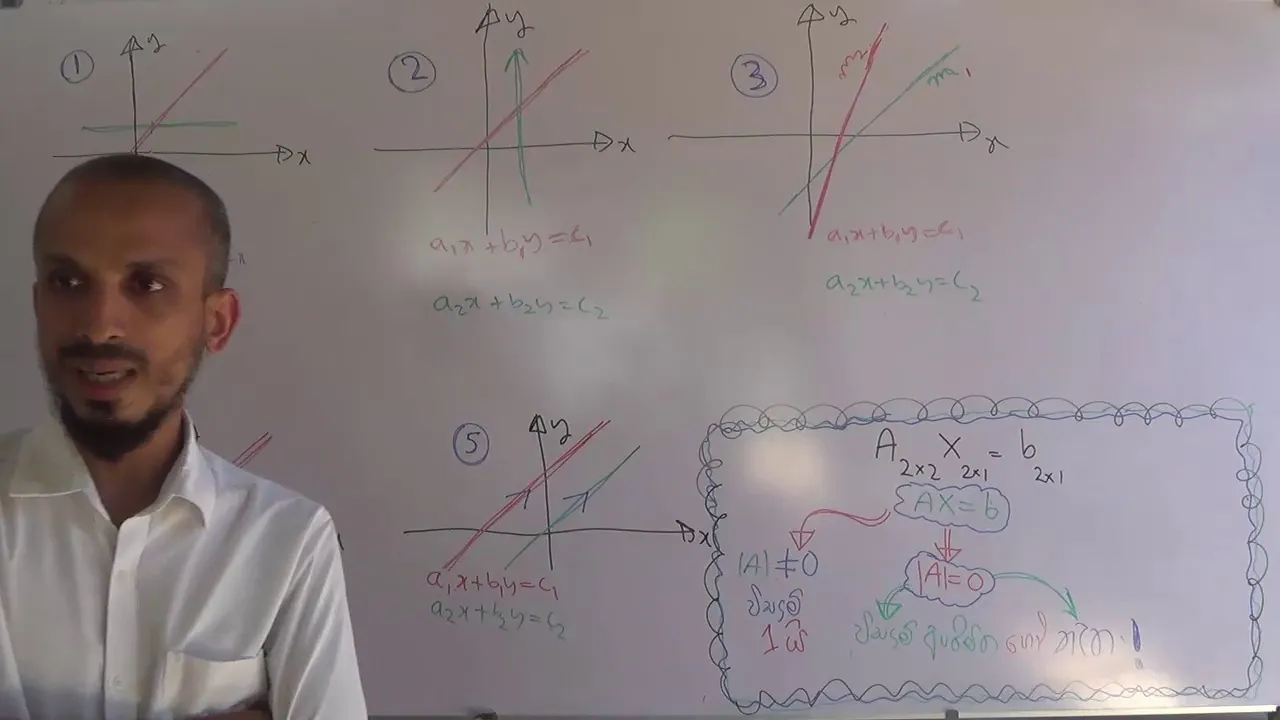 ①
y
x
②
y
x
a₁x + b₁y = c₁
a₂x + b₂y = c₂
③
y
x
m₂
m₁
a₁x + b₁y = c₁
a₂x + b₂y = c₂
⑤
y
x
a₁x + b₁y = c₁
a₂x + b₂y = c₂
A₂ₓ₂ X₂ₓ₁ = b₂ₓ₁
AX = b
|A| ≠ 0
|A| = 0
විසඳුම්
1 යි
විසඳුම් අපරිමිත හෝ නැත !